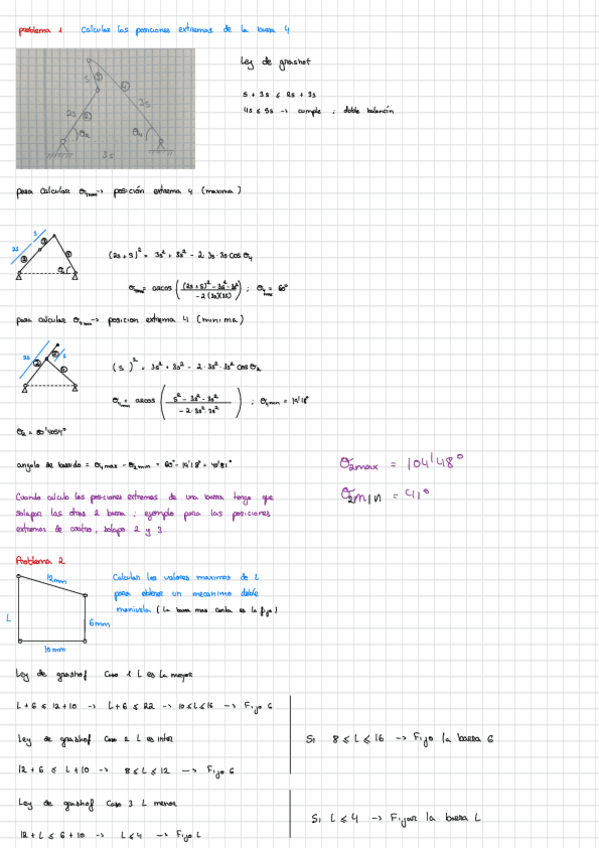 problema 1 Calcular las posiciones extremas de la barra 4
Ley de grashof
s + 3s ≤ 2s + 3s
4s ≤ 5s → cumple ; doble balancín
s ③
④
2s ②
3s
θ2
θ4
3s
para calcular θ4max → posición extrema 4 (maxima)
2s
s
(2s+s)² = 3s² + 3s² - 2·3s·3s cos θ4
θ4max = arcos ( (2s+s)² - 3s² - 3s² / -2(3s)(3s) ) ; θ4max = 60°
para calcular θ4min → posicion extrema 4 (minima)
2s
s
(s)² = 3s² + 3s² - 2·3s²·3s² cos θ2
θ4min = arcos ( s² - 3s² - 3s² / -2·3s²·3s² ) ; θ4min = 19'18°
θ2 = 80'4059°
angulo de barrido = θ4max - θ2min = 60° - 19'18° = 40'81°
θ2max = 104'48°
θ2min = 41°
Cuando calculo las posiciones extremas de una barra tengo que
solapar las otras 2 barra ; ejemplo para las posiciones
extremas de cuatro, solapo 2 y 3.
Problema 2
12mm
L
6mm
10mm
Calcular los valores maximos de L
para obtener un mecanismo doble
manivela (la barra mas corta es la fija)
Ley de grashof Caso 1 L es la mayor
L+6 ≤ 12+10 → L+6 ≤ 22 → 10 ≤ L ≤ 16 → Fijo 6
Ley de grashof Caso 2 L es inter
12+6 ≤ L+10 → 8 ≤ L ≤ 12 → Fijo 6
Si 8 ≤ L ≤ 16 → Fijo la barra 6
Ley de grashof Caso 3 L menor
12+L ≤ 6+10 → L ≤ 4 → Fijo L
Si L ≤ 4 → Fijar la barra L